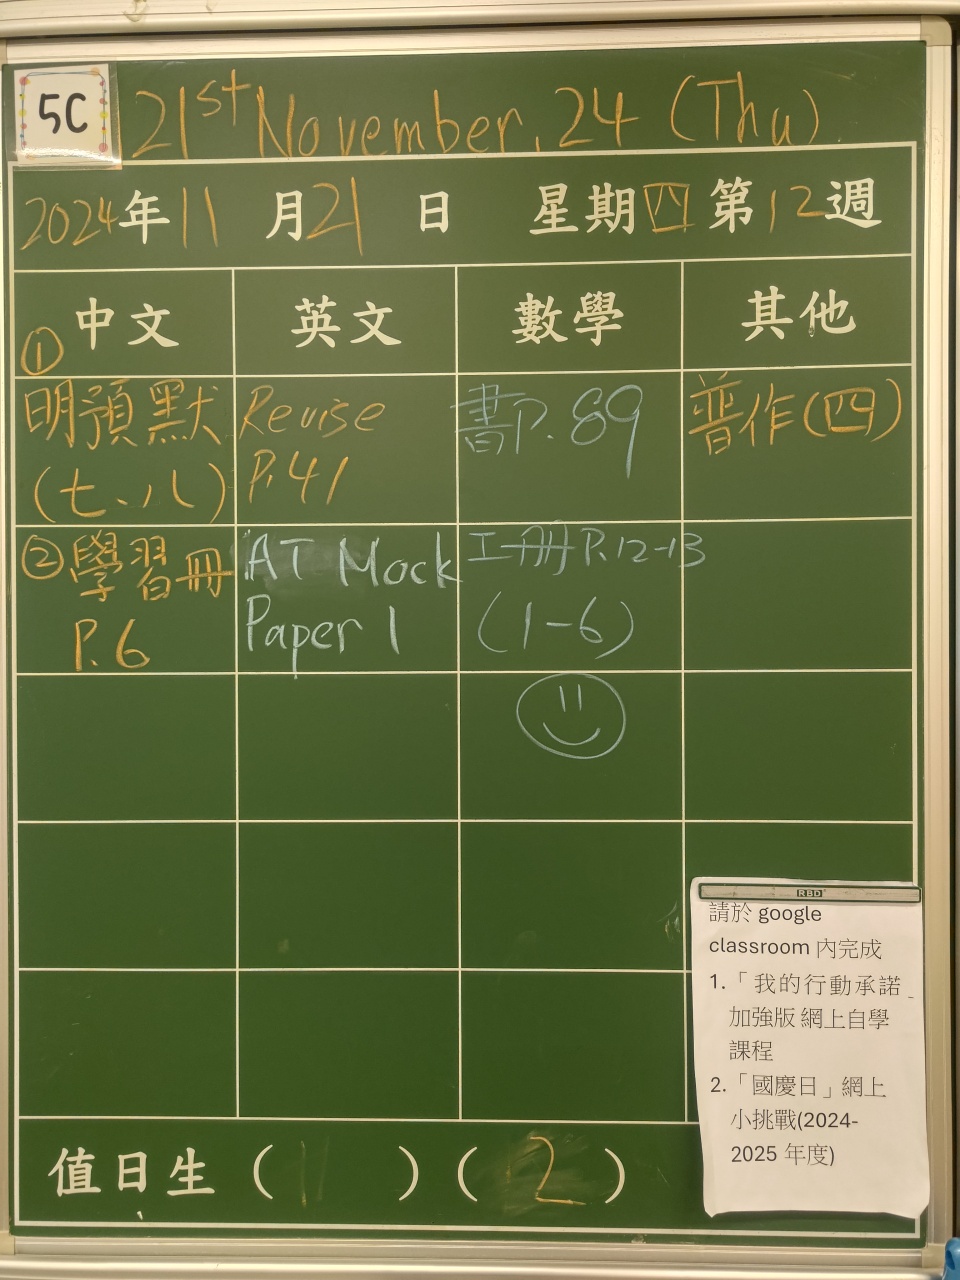 5C
21st November.24 (Thu)
2024年11月21日 星期四第12週
中文 英文 數學 其他
①
明預默
(七、八)
Revise
P.41
書P.89
普作(四)
②學習冊
P.6
AT Mock
Paper 1
工冊P.12-13
(1-6)
RBD
請於 google
classroom 內完成
1.「我的行動承諾_
加強版 網上自學
課程
2.「國慶日」網上
小挑戰(2024-
2025 年度)
值日生 (1)(12)